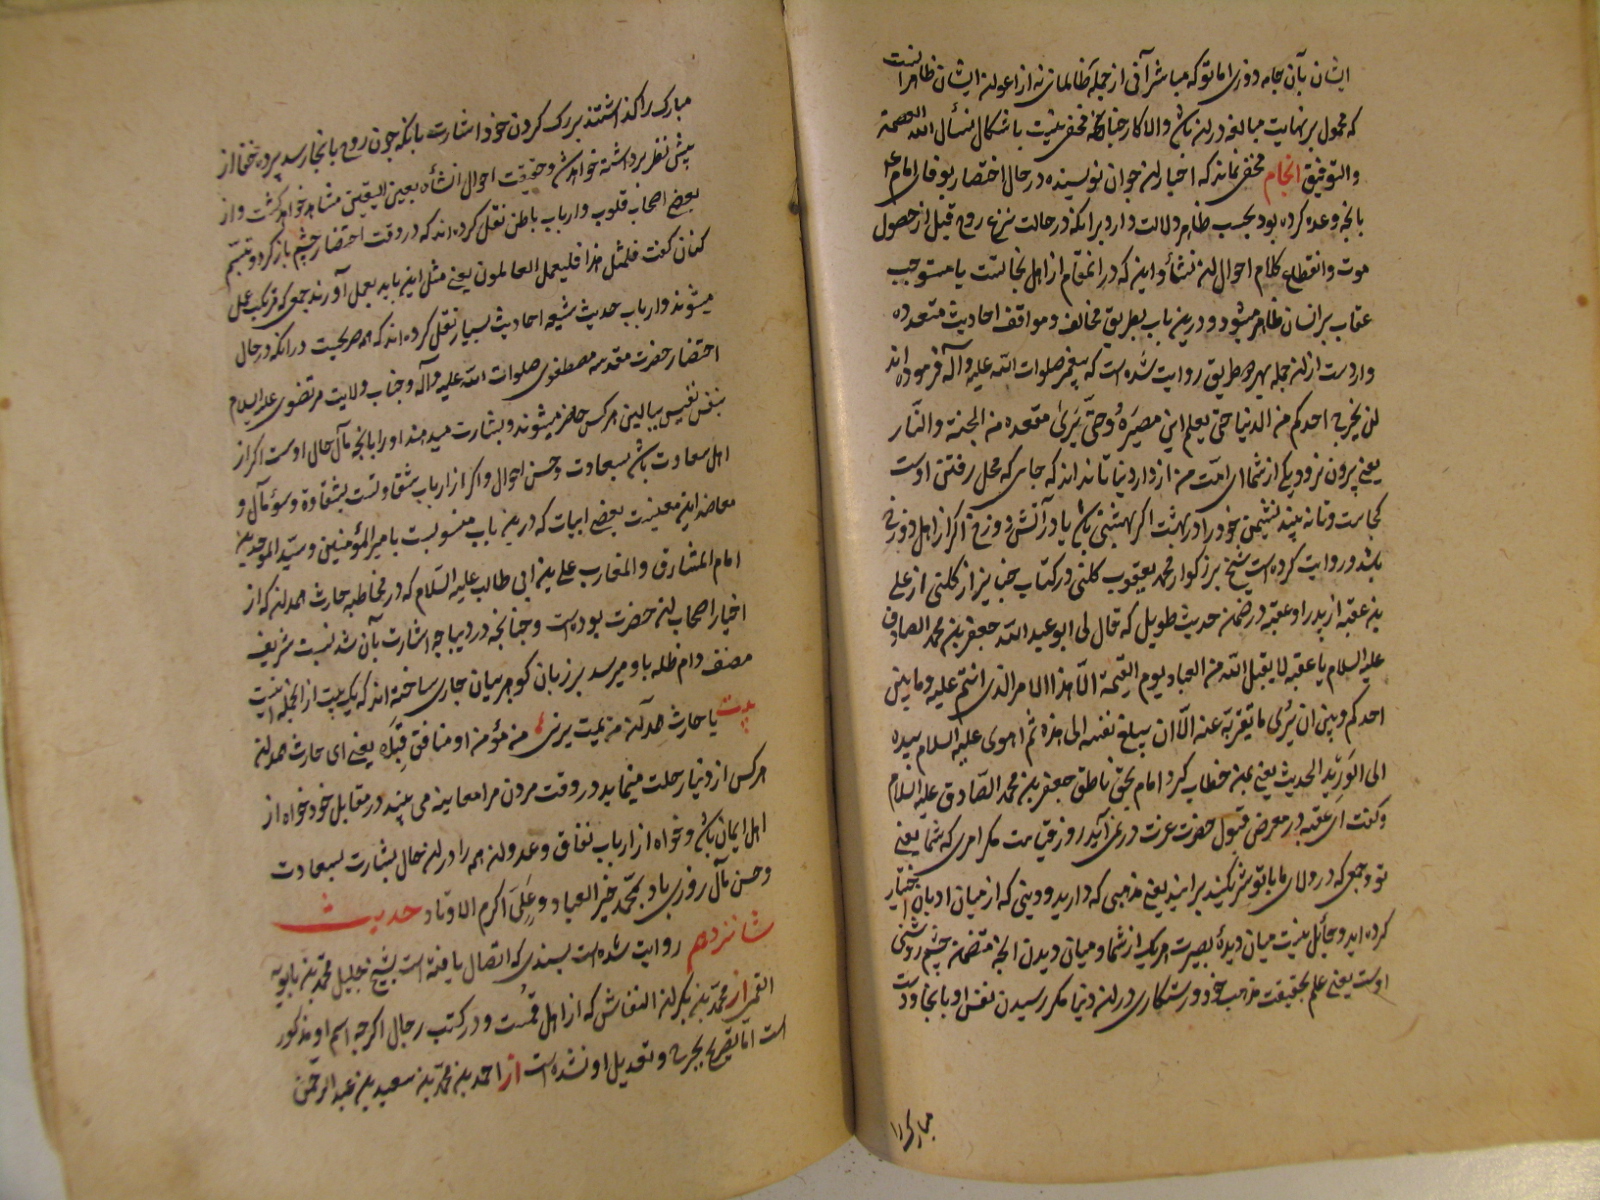 ایشان بآن جامه دوزی اما تو که مباشر آنی از جمله ظالمانی نه از اعوان ایشان ظاهرا اینست
که محمول بر نهایت مبالغه در ان باشد والا کار چنانکه مخفی نیست باشکال نسأل الله العصمة
والتوفیق انجام مخفی نماند که اخبار ان جوان نویسنده در حال احتضار بوفای امام ع
بانچه وعده کرده بود بحسب ظاهر دلالت دارد برانکه در حالت نزع روح قبل از حصول
موت وانقطاع کلام احوال ان نشأه و این که در انمقام از اهل نجاتست یا مستوجب
عقاب بر انسان ظاهر میشود و درین باب بطریق مخالف و مواقف احادیث متعدده
واردست از ان جمله بهر دو طریق روایت شده است که پیغمبر صلوات الله علیه وآله فرموده اند
لن یخرج احدکم من الدنیا حتی یعلم این مصیره وحتی یری مقعده من الجنة والنار
یعنی بیرون نرود یکی از شما ای امت من از دار دنیا تا نداند که جای که محل رفتن اوست
کجاست و تا نه بیند نشیمن خود را در بهشت اگر بهشتی باشد یا در آتش دوزخ اگر از اهل دوزخ
باشد و روایت کرده است شیخ بزرکوار محمد یعقوب کلینی در کتاب جنایز از کلینی از علی
بن عقبه از پدر او عقبه در ضمن حدیث طویل که قال لی ابو عبد الله جعفر بن محمد الصادق
علیه السلام یا عقبه لا یقبل الله من العباد یوم القیمة الا هذا الامر الذی انتم علیه وما بین
احدکم وبین ان یری ما تقر به عنه الا ان یبلغ نفسه الی هذه ثم اهوی علیه السلام بیده
الی الورید الحدیث یعنی بمن خطاب کرد امام بحق ناطق جعفر بن محمد الصادق علیه السلام
وکفت ای عقبه در معرض قبول حضرت عزت در نمی آید روز قیامت مکر امری که شما یعنی
تو وجمعی که در ولای ما با تو شریکند بر انید یعنی مذهبی که دارید و دینی که از میان ادیان اختیار
کرده اید و حائل نیست میان دیدهٔ بصیرت هریک از شما و میان دیدن انچه متضمن چشم روشنی
اوست یعنی علم بحقیقت مذهب خود و رستکاری در ان دنیا مکر رسیدن نفس او بانجا و دست
مبارک را
مبارک را کذاشتند بر رک کردن خود اشارت بانکه چون روح بانجا رسد پرده خفا از
پیش نظر برداشته خواهد شد وحقیقت احوال انشأه بعین الیقین مشاهد خواهد کشت و از
بعضی اصحاب قلوب وارباب باطن نقل کرده اند که در وقت احتضار چشم باز کرد و تبسم
کنان کفت فلمثل هذا فلیعمل العاملون یعنی مثل این باید بعمل آورند جمعی که مرتکب عمل
میشوند وارباب حدیث شیعه احادیث بسیار نقل کرده اند که همه صریحست در انکه در حال
احتضار حضرت مقدسه مصطفوی صلوات الله علیه وآله و جناب ولایت مرتضوی علیه السلام
بنفس نفیس ببالین هر کس حاضر میشوند و بشارت میدهند او را بانچه مآل حال اوست اکر از
اهل سعادت باشد بسعادت وحسن احوال و اکر از ارباب شقاوتست بشقاوة وسوء مآل و
معاضد این معنیست بعضی ابیات که درین باب منسوبست بامیر المؤمنین وسید الموحدین
امام المشارق والمغارب علی بن ابی طالب علیه السلام که در مخاطبه حارث همدان که از
اخیار اصحاب ان حضرت بوده است وچنانچه در دیباچه اشارت بآن شد نسبت شریف
مصنف دام ظله باو میرسد بر زبان کوهر بیان جاری ساخته اند که یک بیت از انجمله اینست
بیت یا حارث همدان من یمت یرنی من مؤمن او منافق قبلا یعنی ای حارث همدان
هرکس از دنیا رحلت مینماید در وقت مردن مرا معاینه می بیند در مقابل خود خواه از
اهل ایمان باشد و خواه از ارباب نفاق وعدوان همه را در ان حال بشارت بسعادت
وحسن مآل روزی باد بمحمد خیر العباد وعلی اکرم الاوتاد حدیث
شانزدهم روایت شده است بسندی که اتصال یافته است بشیخ جلیل محمد بن بابویه
القمی از محمد بن بکران النقاش که از اهل قمست و در کتب رجال اکرچه اسم او مذکور
است اما تصریح بجرح وتعدیل او نشده است از احمد بن محمد بن سعید بن عبد الرحمن